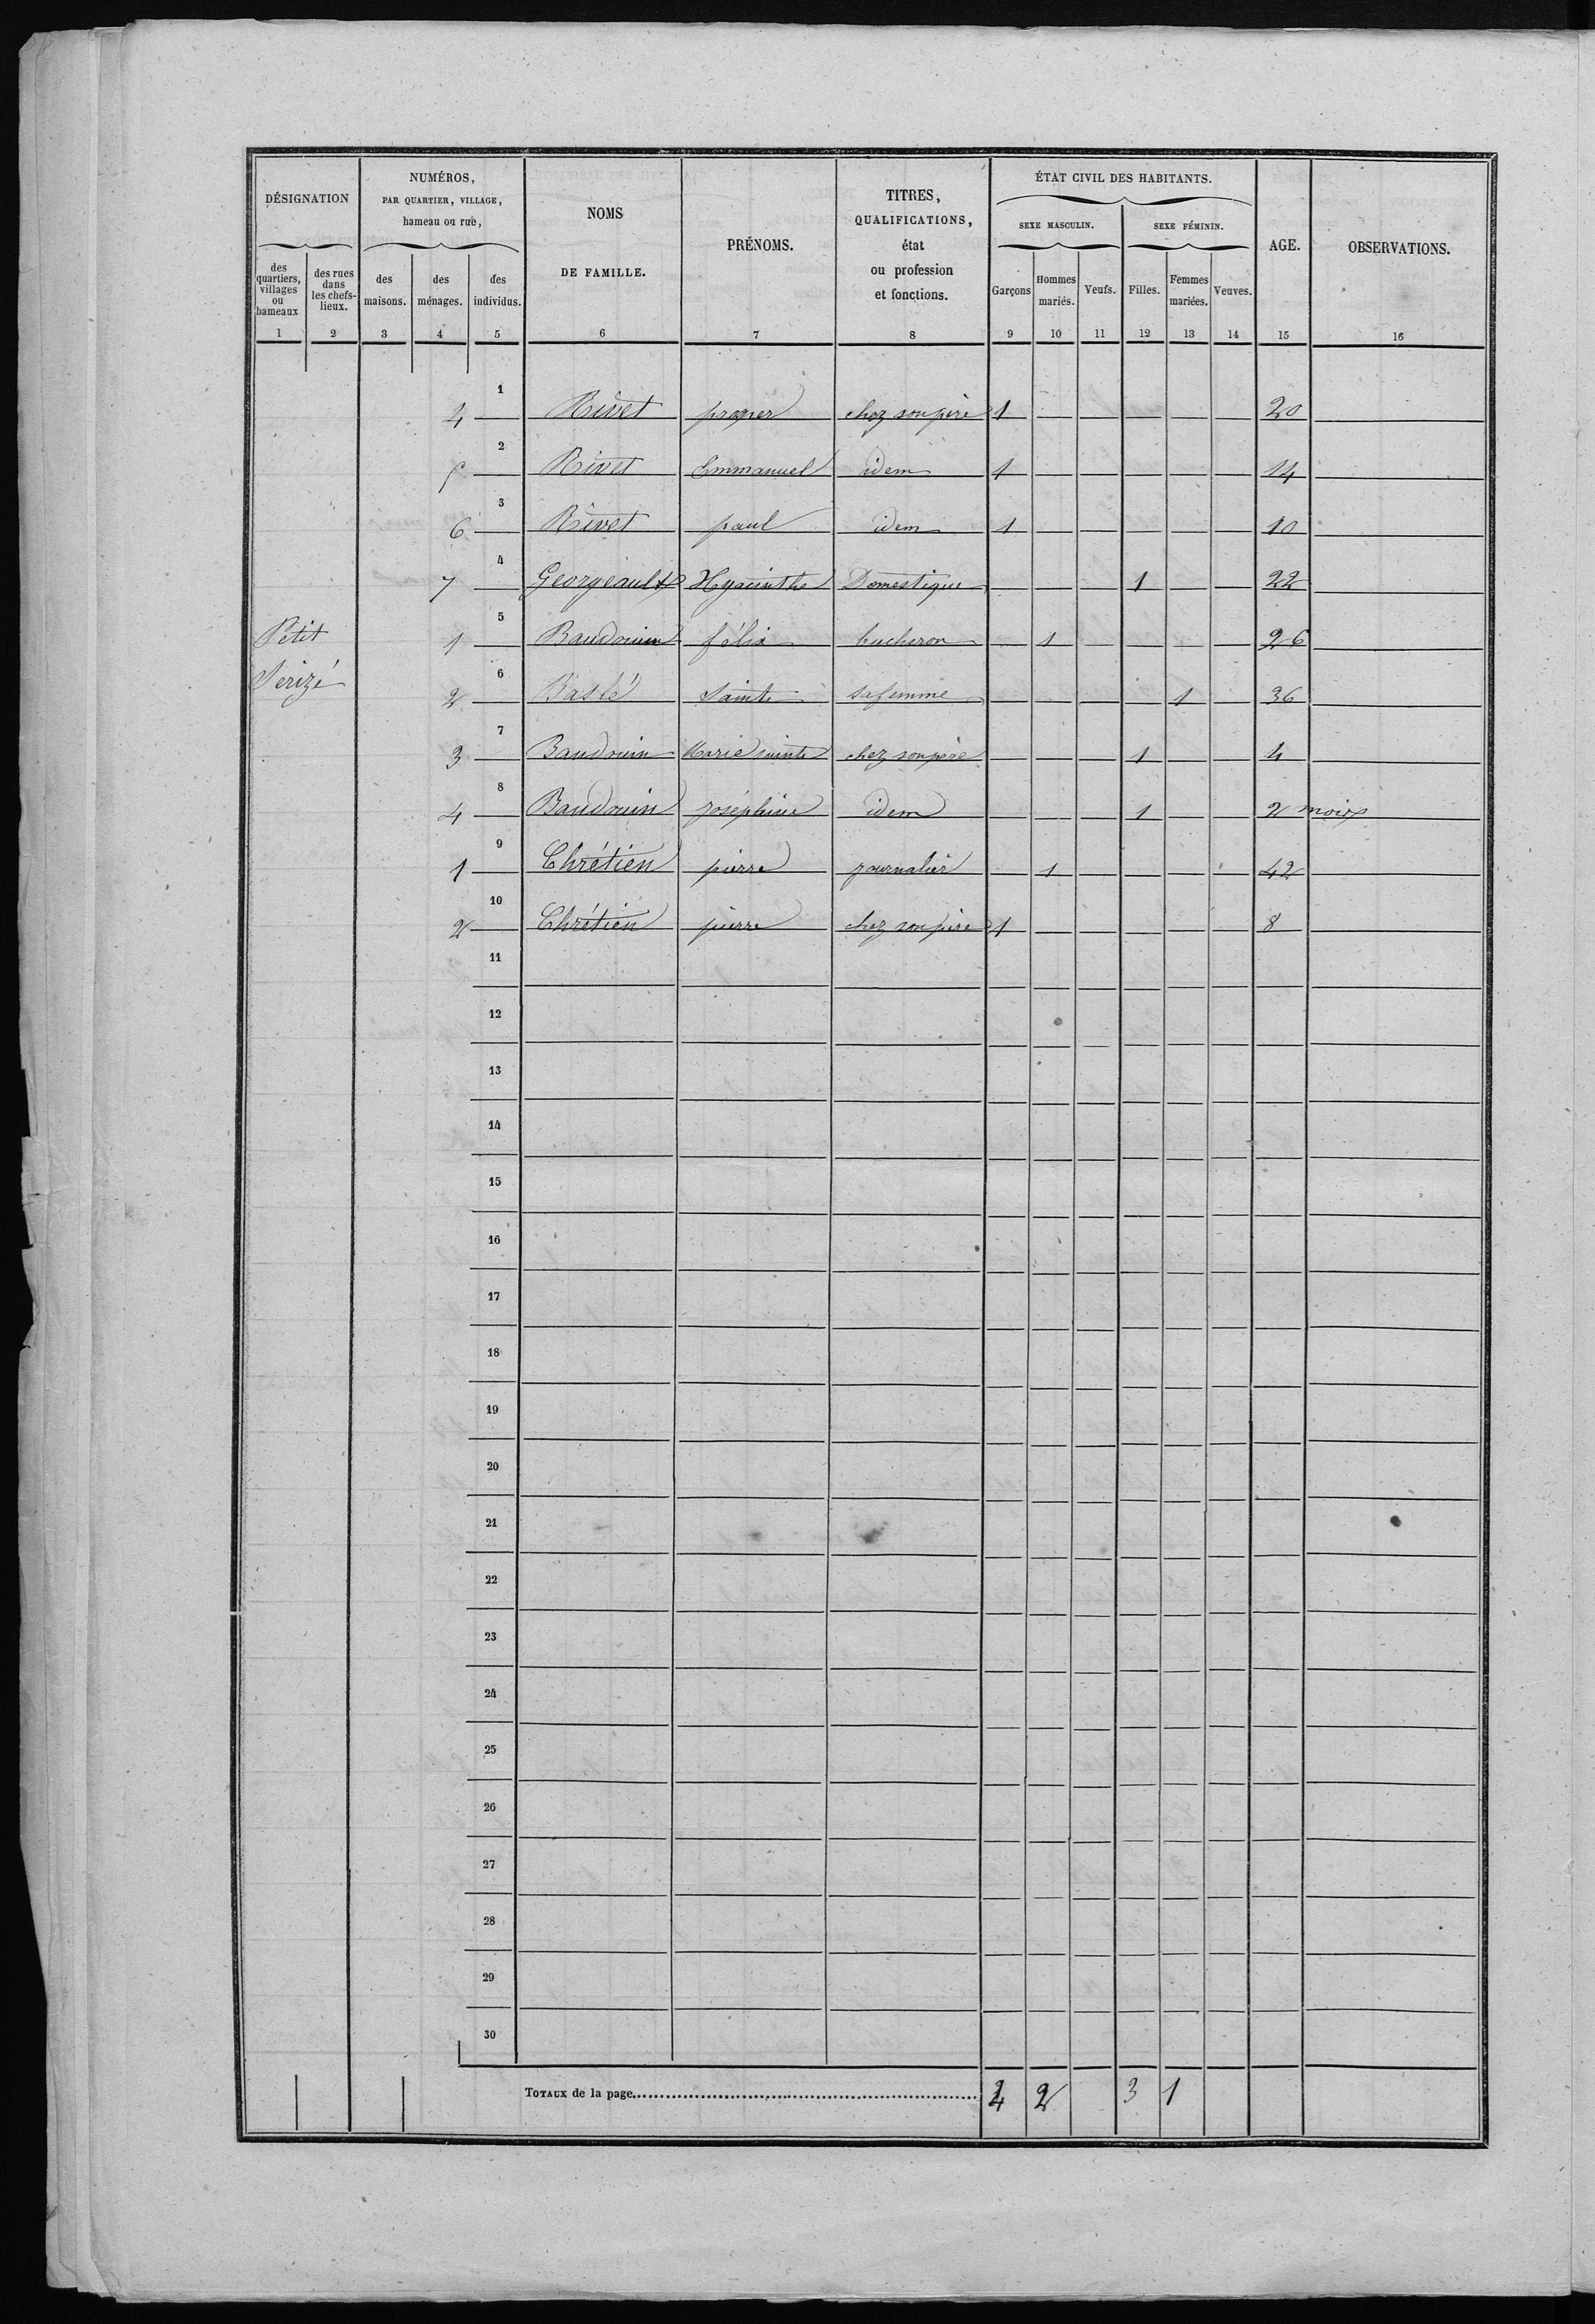 DÉSIGNATION
NUMÉROS,
PAR QUARTIER, VILLAGE,
hameau ou rue,
NOMS
DE FAMILLE.
PRÉNOMS.
TITRES,
QUALIFICATIONS,
état
ou profession
et fonctions.
ÉTAT CIVIL DES HABITANTS.
SEXE MASCULIN.
SEXE FÉMININ.
AGE.
OBSERVATIONS.
des quartiers, villages ou hameaux
des rues dans les chefs-lieux.
des maisons.
des ménages.
des individus.
Garçons
Hommes mariés.
Veufs.
Filles.
Femmes mariées.
Veuves.
1 2 3 4 5 6 7 8 9 10 11 12 13 14 15 16
4 1 Rivet prosper chez son père 1 20
5 2 Rivet Emmanuel idem 1 14
6 3 Rivet paul idem 1 10
7 4 Georgeault Hyacinthe Domestique 1 22
Petit 1 5 Baudouin félix bucheron 1 26
Serizé 2 6 Baslé Sainte sa femme 1 36
3 7 Baudouin Marie sainte chez son père 1 4
4 8 Baudouin joséphine idem 1 2 mois
1 9 Chrétien pierre journalier 1 42
2 10 Chrétien pierre chez son père 1 8
11
12
13
14
15
16
17
18
19
20
21
22
23
24
25
26
27
28
29
30
TOTAUX de la page 4 2 3 1